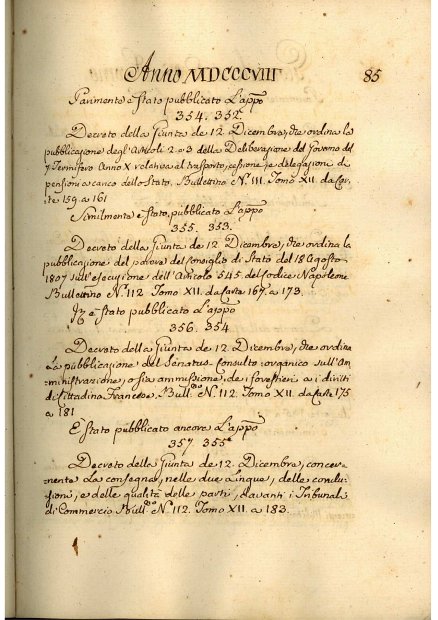 Anno MDCCCVIII 85
Parimente è Stato pubblicato L'appo
354. 352.
Decreto della Giunta de 12. Dicembre, che ordina la
pubblicazione degl'Articoli 2. e 3 della Deliberazione del Governo del
7. Termifero Anno X relativa al trasporto, cessione, e delegazioni di
pensioni a carico dello Stato. Bullettino N. 111. Tomo XII. da Car-
te 159. a 161
Similmente è Stato pubblicato L'appo
355. 353.
Decreto della Giunta de 12 Dicembre, che ordina la
pubblicazione del parere del Consiglio di Stato del 18 Agosto
1807 sull'esecuzione dell'Articolo 545. del Codice Napoleone
Bullettino N. 112. Tomo XII. da Carte 167. a 173.
è Stato pubblicato L'appo
356. 354
Decreto della Giunta de 12. Dicembre, che ordina
La pubblicazione del Senatus-Consulto organico sull'Am-
ministrazione, o sia ammissione de i forestieri a i diritti
di Cittadino Francese. Bull.no N. 112. Tomo XII. da Carte 175
a 181
È Stato pubblicato ancora L'appo
357. 355.
Decreto della Giunta de 12. Dicembre, concer-
nente La consegna, nelle due Lingue, delle conclu-
sioni, e delle qualità delle parti, davanti i Tribunali
di Commercio Bull.no N. 112. Tomo XII. a 183.